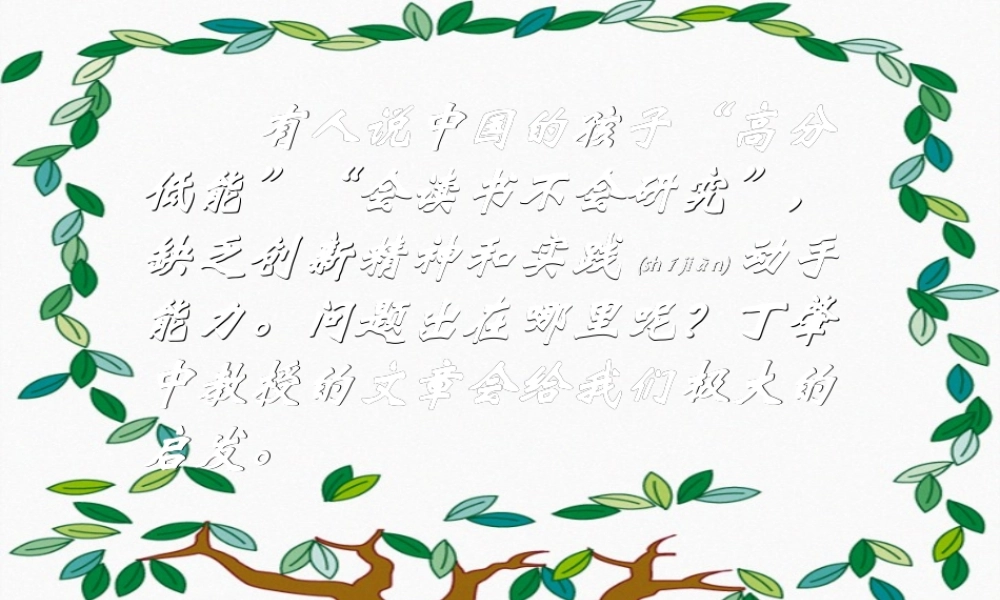 有人说中国的孩子“高分
低能”“会读书不会研究”，
缺乏创新精神和实践(shíjiàn)动手
能力。问题出在哪里呢？丁肇
中教授的文章会给我们极大的
启发。